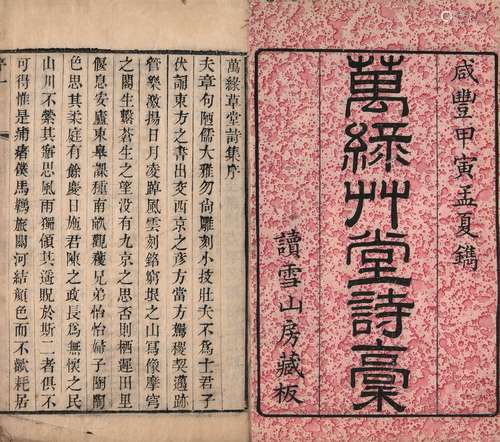 咸豐甲寅孟夏鐫
萬綠艸堂詩藁
讀雪山房藏板
萬綠草堂詩集序
夫章句陋儒大雅勿尚雕刻小技壯夫不為士君子
伏誦東方之書出交西京之彥方當方駕稷契邁跡
管樂激揚日月凌踔風雲刻銘窮垠之山寫像摩穹
之閣生繫蒼生之望沒有九京之思否則栖遲田里
偃息安廬東皋課種南畝觀穫兄弟怡怡婦子誾誾
色思其柔庭有餘慶日施君陳之政長為無懷之民
山川不縈其寤思風雨獨傾其於斯二者俱不
可得惟是痡瘏僕馬羈旅關河結顏色而不歡耗居
序一